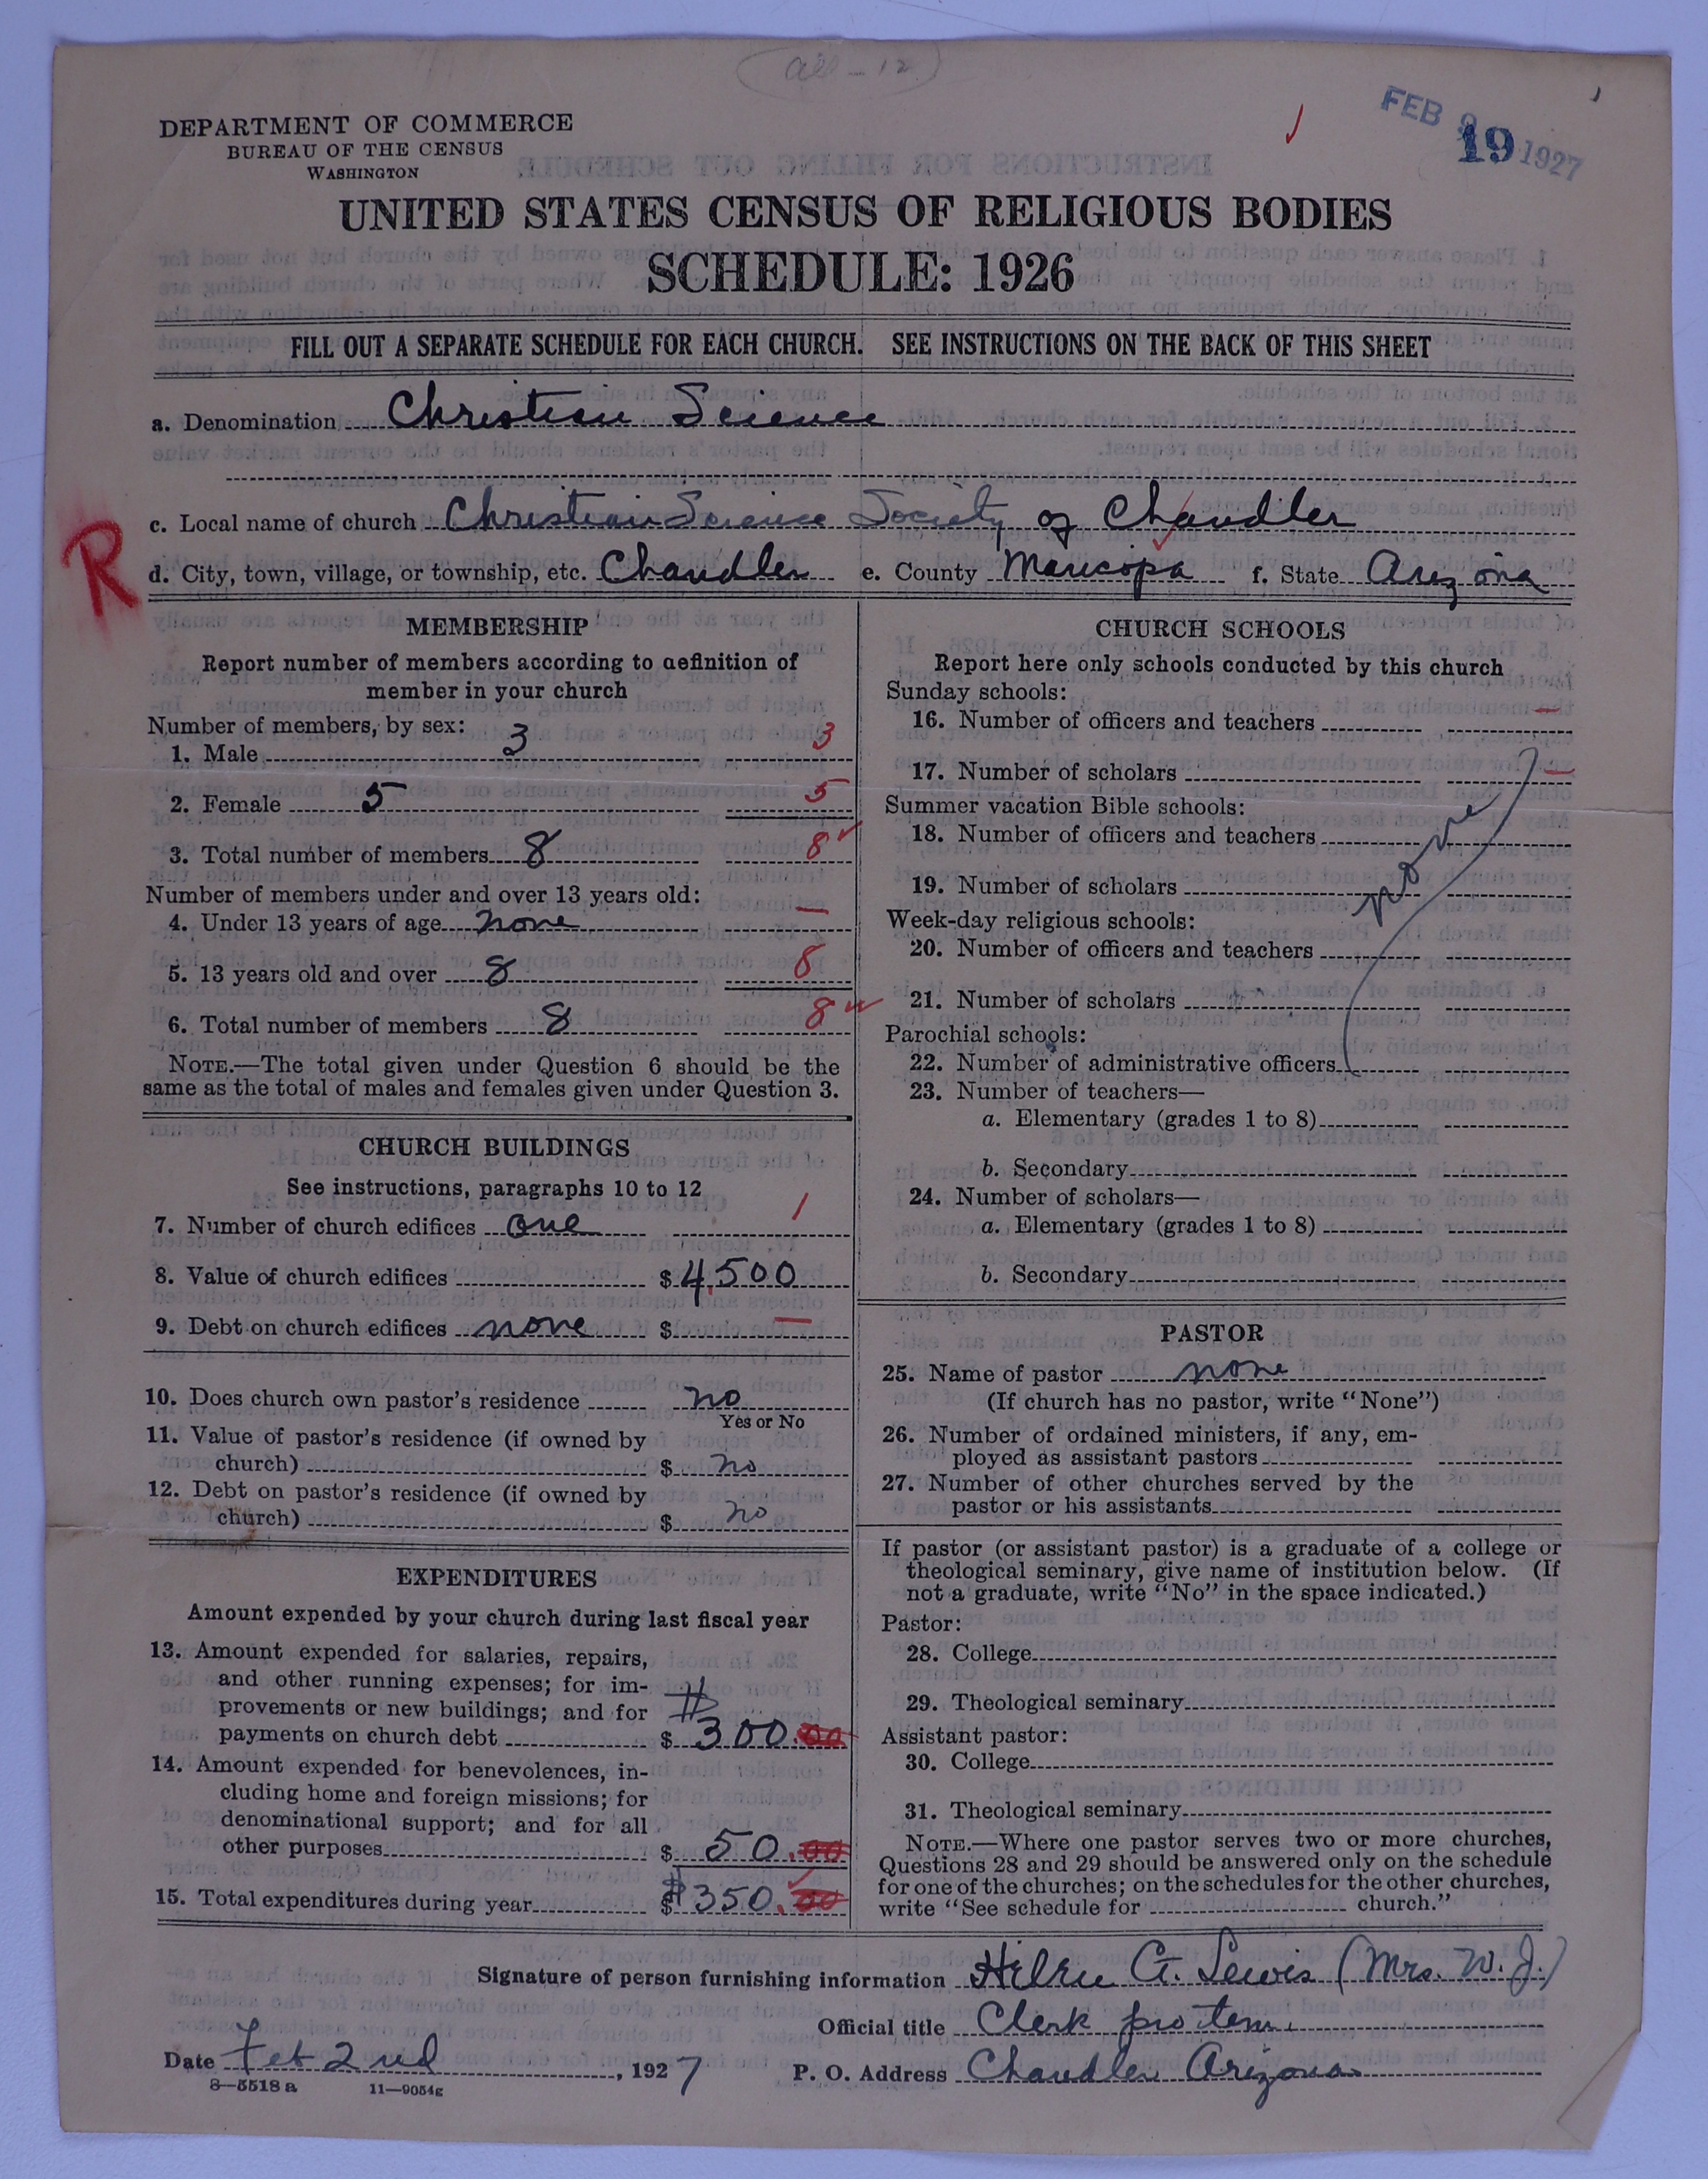 (all - 12)
FEB 9 1927
19
DEPARTMENT OF COMMERCE
BUREAU OF THE CENSUS
WASHINGTON
UNITED STATES CENSUS OF RELIGIOUS BODIES
SCHEDULE: 1926
FILL OUT A SEPARATE SCHEDULE FOR EACH CHURCH. SEE INSTRUCTIONS ON THE BACK OF THIS SHEET
a. Denomination Christian Science
R
c. Local name of church Christian Science Society of Chandler
d. City, town, village, or township, etc. Chandler e. County Maricopa f. State Arizona
MEMBERSHIP
Report number of members according to definition of
member in your church
Number of members, by sex:
1. Male 3 3
2. Female 5 5
3. Total number of members 8 8
Number of members under and over 13 years old:
4. Under 13 years of age none —
5. 13 years old and over 8 8
6. Total number of members 8 8
NOTE.—The total given under Question 6 should be the
same as the total of males and females given under Question 3.
CHURCH BUILDINGS
See instructions, paragraphs 10 to 12
7. Number of church edifices one 1
8. Value of church edifices $ 4,500
9. Debt on church edifices none $ —
10. Does church own pastor's residence no
Yes or No
11. Value of pastor's residence (if owned by
church) $ no
12. Debt on pastor's residence (if owned by
church) $ no
EXPENDITURES
Amount expended by your church during last fiscal year
13. Amount expended for salaries, repairs,
and other running expenses; for im-
provements or new buildings; and for
payments on church debt $ $300.00
14. Amount expended for benevolences, in-
cluding home and foreign missions; for
denominational support; and for all
other purposes $ 50.00
15. Total expenditures during year $ $350.00
CHURCH SCHOOLS
Report here only schools conducted by this church
Sunday schools:
16. Number of officers and teachers —
17. Number of scholars —
Summer vacation Bible schools:
18. Number of officers and teachers
none
19. Number of scholars
Week-day religious schools:
20. Number of officers and teachers
21. Number of scholars
Parochial schools:
22. Number of administrative officers
23. Number of teachers—
a. Elementary (grades 1 to 8)
b. Secondary
24. Number of scholars—
a. Elementary (grades 1 to 8)
b. Secondary
PASTOR
25. Name of pastor none
(If church has no pastor, write "None")
26. Number of ordained ministers, if any, em-
ployed as assistant pastors
27. Number of other churches served by the
pastor or his assistants
If pastor (or assistant pastor) is a graduate of a college or
theological seminary, give name of institution below. (If
not a graduate, write "No" in the space indicated.)
Pastor:
28. College
29. Theological seminary
Assistant pastor:
30. College
31. Theological seminary
NOTE.—Where one pastor serves two or more churches,
Questions 28 and 29 should be answered only on the schedule
for one of the churches; on the schedules for the other churches,
write "See schedule for church."
Signature of person furnishing information Helen G. Lewis (Mrs. W. J.)
Official title Clerk pro tem.
Date Feb 2nd, 1927 P. O. Address Chandler Arizona
8—5518 a 11—9054g